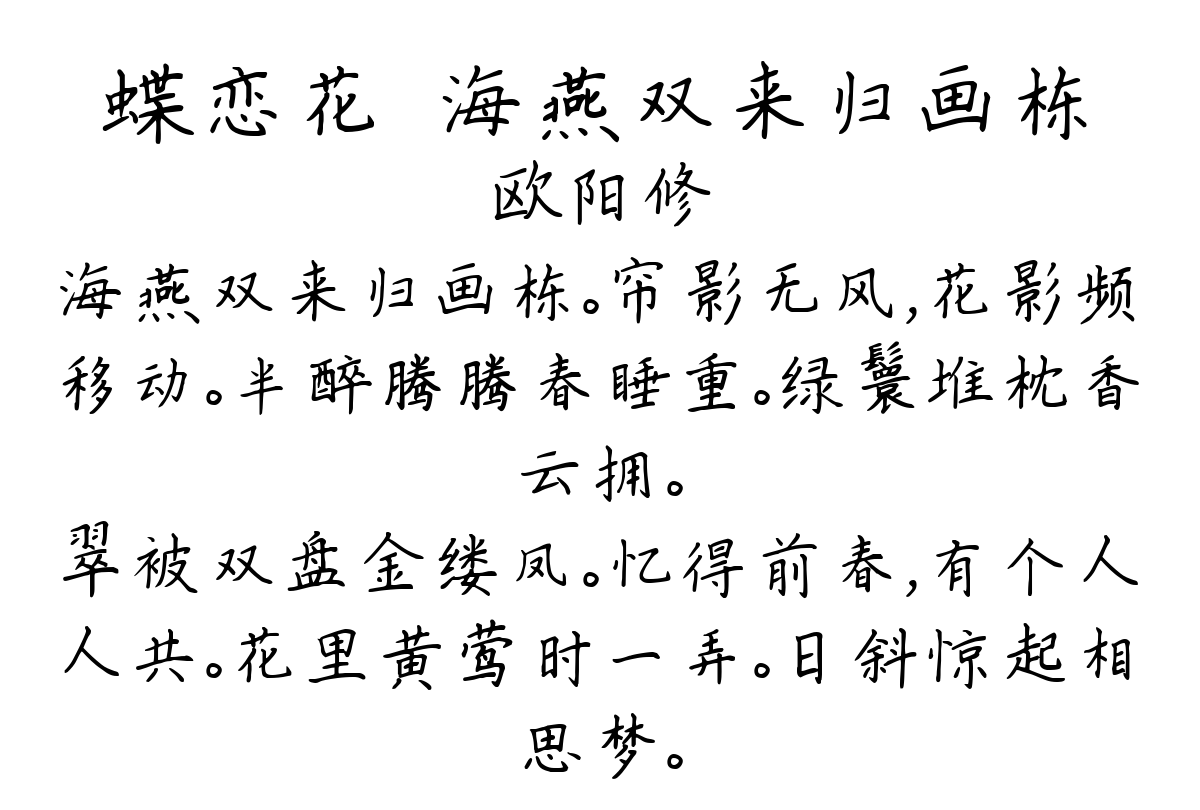 蝶恋花 海燕双来归画栋
欧阳修
海燕双来归画栋。帘影无风,花影频
移动。半醉腾腾春睡重。绿鬟堆枕香
云拥。
翠被双盘金缕凤。忆得前春,有个人
人共。花里黄莺时一弄。日斜惊起相
思梦。